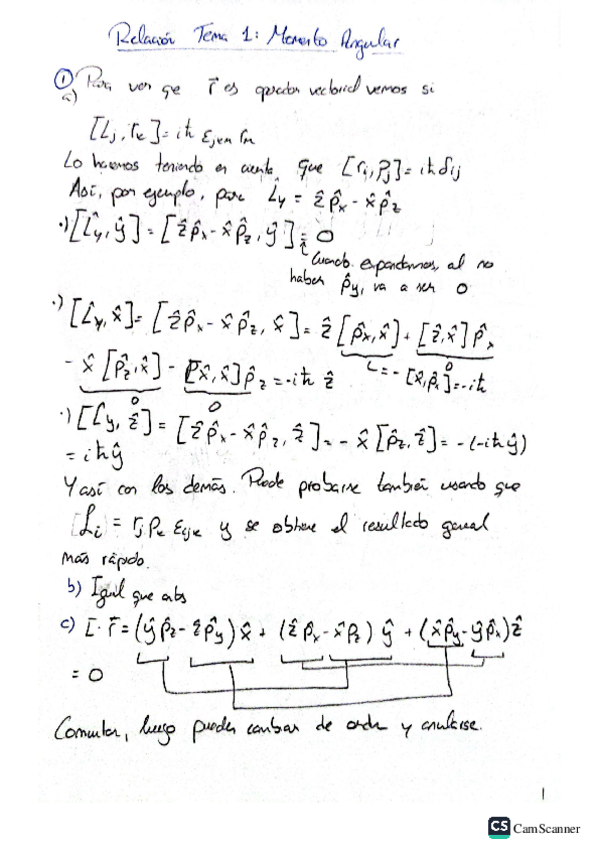 Relación Tema 1: Momento Angular
① Para ver qe r⃗ es operador vectorial vemos si
a)
[Lj, rk] = iħ εjkm rm
Lo hacemos teniendo en cuenta que [ri, pj] = iħ δij
Así, por ejemplo, para L̂y = ẑp̂x - x̂p̂z
·) [L̂y, ŷ] = [ẑp̂x - x̂p̂z, ŷ] = 0
Cuando expandamos, al no
haber p̂y, va a ser 0
·) [L̂y, x̂] = [ẑp̂x - x̂p̂z, x̂] = ẑ[p̂x, x̂] + [ẑ, x̂]p̂x
- x̂[p̂z, x̂] - [x̂, x̂]p̂z = -iħ ẑ = -[x̂, p̂x] = -iħ 0
0 0
·) [L̂y, ẑ] = [ẑp̂x - x̂p̂z, ẑ] = -x̂[p̂z, ẑ] = -(-iħŷ)
= iħŷ
Y así con los demás. Puede probarse también usando que
[Li) = rj pk εijk y se obtiene el resultado general
más rápido.
b) Igual que antes
c) L⃗ · r⃗ = (ŷp̂z - ẑp̂y)x̂ + (ẑp̂x - x̂p̂z)ŷ + (x̂p̂y - ŷp̂x)ẑ
= 0
Conmutan, luego pueden cambiar de orden y anularse.
1
CS CamScanner